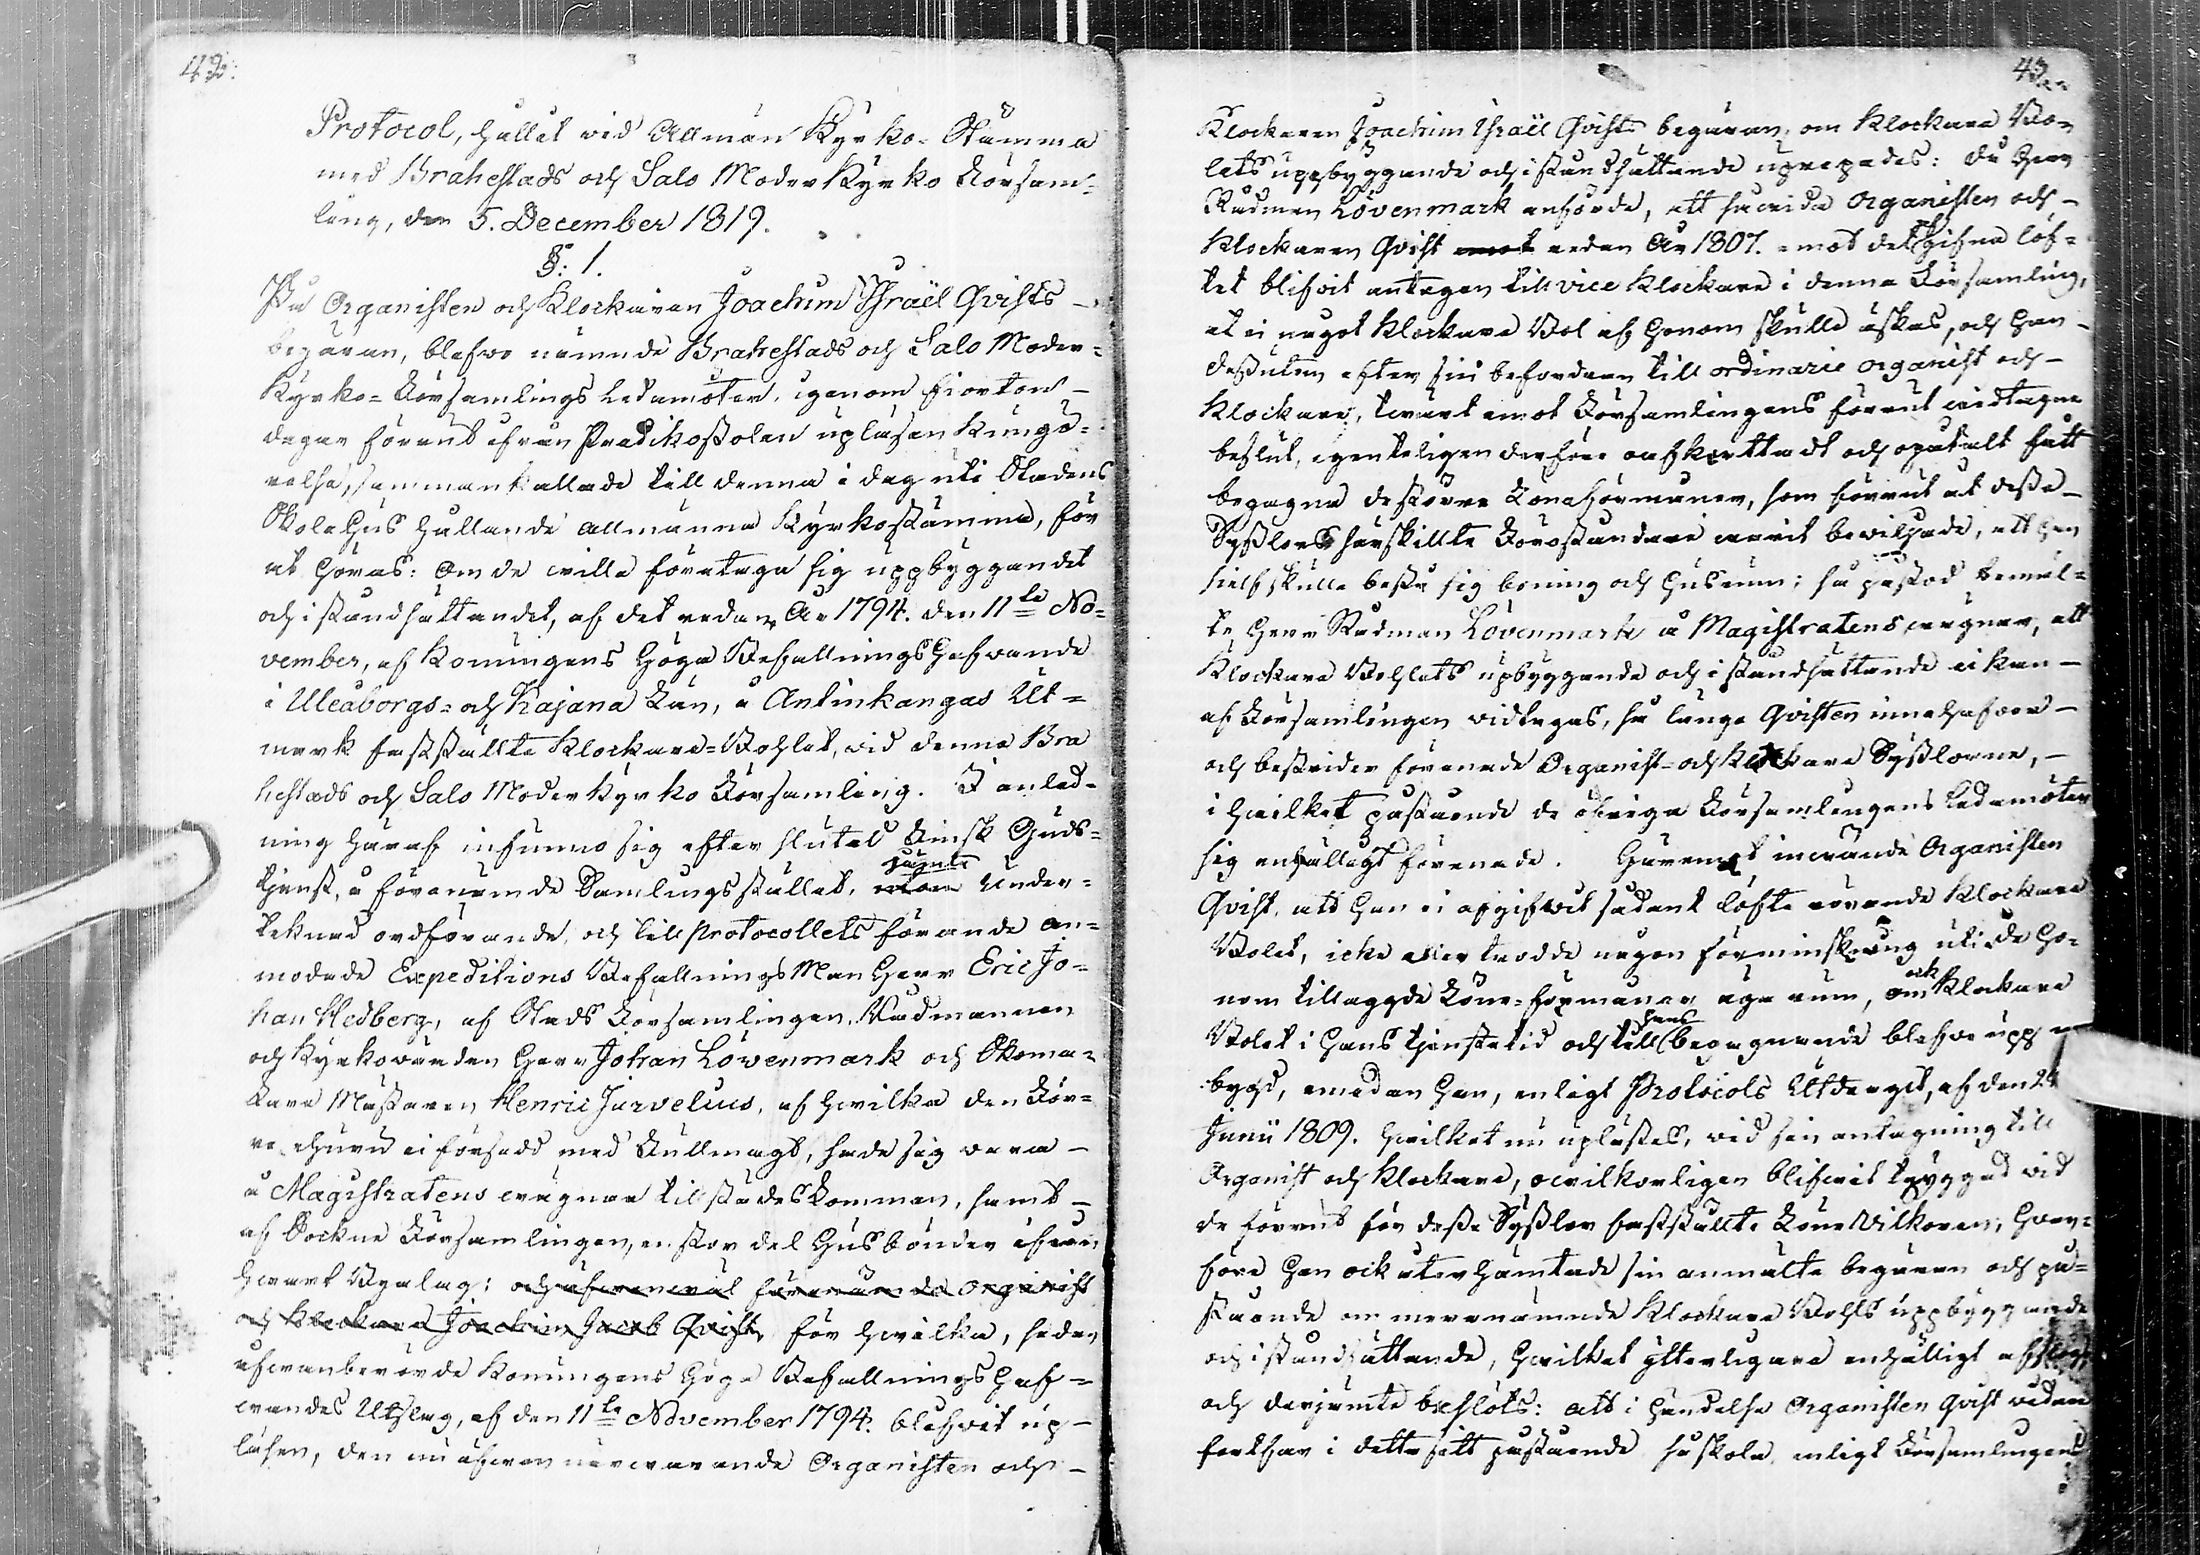 42.
Protocol, hållet wid Allmän Kyrko-Stämma
med Brahestads och Salo Moder Kyrko Försam-
ling, den 5. December 1819.
§: 1.
På Organisten och Klockaren Joachim Israël Qvists -
begäran, blefwo nämnde Brahestads och Salo Moder-
Kyrko-Församlings Ledamöter, igenom fiorton -
dagar förrut ifrån Predikostolen upläsen kungö-
relse, sammankallade till denna i dag uti Stadens
Skola Hus hållande allmänna Kyrkostämma, för
at höras: Om de wille företaga sig uppbyggandet
och iståndsättandet, af det redan År 1794. den 11te No-
vember, af Konungens Höga Befallningshafwande
i Uleåborgs- och Kajana Län, å Antinkangas Ut-
mark fastställte Klockare-Bohlet, wid denna Bra
hestads och Salo Moder Kyrko Församling. I anled-
ning häraf infunno sig efter slutad Finsk Guds-
tjenst, å förenämnde Samlingsställe,
jämte
Under-
teknad ordförande, och till Protocollets förande an-
modade Expeditions BefallningsMan Herr Eric Jo-
han Hedberg, af Stads Församlingen, Rådmannen
och Kyrkowärden Herr Johan Lövenmark och Skoma-
kare Mästaren Henric Jurvelius, af hwilka den För-
re ehuru ei försedd med Fullmagt, sade sig vara -
å Magistratens wägnar tillstädes kommen, samt -
af Sockne Församlingen, en stor del Husbönder ifrån
hwart Byalag: och äfwenwäl förenämnde Organist
och Klockare Joachim Jacob Qvist, för hwilka, sedan
ofwanberörde Konungens Höga Befallningshaf-
wandes Utslag, af den 11te November 1794. blifwit up-
läsen, den nu äfwen närwarande Organisten och -
43.
Klockaren Joachim Israël Qvists begäran, om Klockare Bo-
lets uppbyggande och iståndsättande uprepades: då Herr
Rådman Lövenmark anförde, att såwida Organisten och -
Klockaren Qvist emot redan År 1807. emot det gifna löf-
tet blifvit antagen till vice Klockare i denna Församling,
at ei något Klockare Bol af honom skulle äskas, och han -
dessutom efter sin befordran till ordinarie Organist och -
Klockare, twärt emot Församlingens förrut widtagne
beslut, egenteligen derföre oafkortadt och opåtalt fått
begagna de större Löneförmåner, som förrut åt desse -
Sysslors särskillte Föreståndare warit bewilljade, att han
sielf skulle bestå sig boning och husrum; så påstod bemäl-
te Herr Rådman Lövenmark å Magistratens wägnar, att
Klockare Bohlets upbyggande och iståndsättande ei kan -
af Församlingen vidtagas, så länge Qvisten innehafwer -
och bestrider förenade Organist- och Klockare Sysslorne, -
i hwilket påstående de öfriga Församlingens Ledamöter
sig enhälligt förenade. Häremot inwände Organisten
Qvist, att han ei afgifwit sådant löfte rörande Klockare
Bolet, icke eller trodde någon förminskning uti de ho-
nom tillaggde Löne-förmåner äga rum, om
ock
Klockare
Bolet i hans tjenstetid och till
hans
begagnande blefwe upp
bygd, emedan han, enligt Protocols Utdraget, af den 24
Junii 1809. hwilket nu uplästes, wid sin antagning till
Organist och Klockare, owilkorligen blifwit tryggad wid
de förrut för desse Sysslor fastställte Löne Vilkoren, hwar-
före han ock återhämtade sin anmälte begäran och på-
stående om merenämnde Klockare Bohls uppbyggande
och iståndsättande, hwilket ytterligare enhälligt afslogs
och derjämte beslöts: att i händelse Organisten Qvist widare
forthar i detta sitt påstående så skola, enligt Församlingens